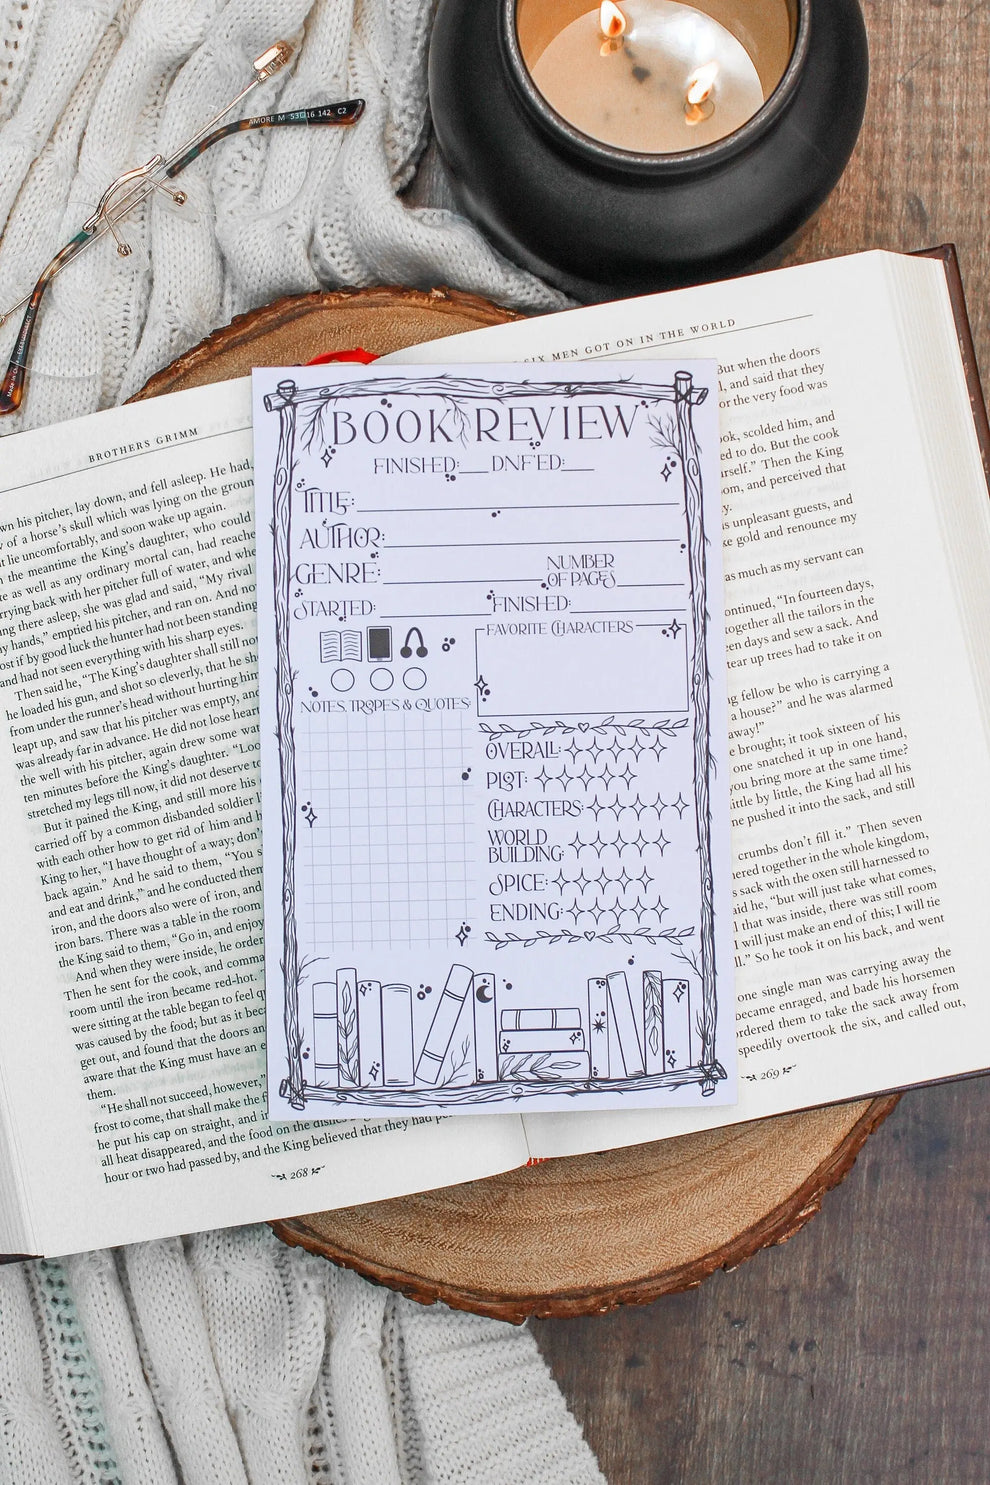 AMORE M 53 16 142 C2
BROTHERS GRIMM
SIX MEN GOT ON IN THE WORLD
BOOK REVIEW
FINISHED:___ DNF'ED:___
TITLE:
AUTHOR:
GENRE:
NUMBER
OF PAGES
STARTED:
FINISHED:
FAVORITE CHARACTERS
NOTES, TROPES & QUOTES:
OVERALL:
PLOT:
CHARACTERS:
WORLD
BUILDING:
SPICE:
ENDING:
his pitcher, lay down, and fell asleep. He had,
of a horse's skull which was lying on the
he uncomfortably, and soon wake up again.
the meantime the King's daughter, who could
as well as any ordinary mortal can, had reache
rying back with her pitcher full of water, and whe
ing there asleep, she was glad and said, "My rival
hands," emptied his pitcher, and ran on. And
if by good luck the hunter had not been standing
and had not seen everything with his sharp eyes.
Then said he, "The King's daughter shall still
he loaded his gun, and shot so cleverly, that he
from under the runner's head without hurting him
leapt up, and saw that his pitcher was empty, and
was already far in advance. He did not lose heart
the well with his pitcher, again drew some
ten minutes before the King's daughter. "Loo
stretched my legs till now, it did not deserve to
But it pained the King, and still more his
carried off by a common disbanded soldier
with each other how to get rid of him and
to her, "I have thought of a way; don'
back again." And he said to them, "You s
and eat and drink," and he conducted them
iron, and the doors also were of iron, and
iron bars. There was a table in the room
the King said to them, "Go in, and enjoy
And when they were inside, he order
Then he sent for the cook, and comma
room until the iron became red-hot.
were sitting at the table began to feel
was caused by the food; but as it
get out, and found that the doors
aware that the King must have
them.
"He shall not succeed, however,"
frost to come, that shall make the
he put his cap on straight, and
all heat disappeared, and the food on the dishes
hour or two had passed by, and the King believed that they had
268
But when the doors
, and said that they
or the very food was
scolded him, and
ed to do. But the cook
" Then the King
and perceived that
unpleasant guests, and
gold and renounce my
as much as my servant can
"In fourteen days,
together all the tailors in the
days and sew a sack. And
tear up trees had to take it on
fellow be who is carrying a
a house?" and he was alarmed
away!"
brought; it took sixteen of his
one snatched it up in one hand,
you bring more at the same time?
little by little, the King had all his
pushed it into the sack, and still
crumbs don't fill it." Then seven
together in the whole kingdom,
sack with the oxen still harnessed to
"but will just take what comes,
that was inside, there was still room
I will just make an end of this; I will tie
" So he took it on his back, and went
one single man was carrying away the
became enraged, and bade his horsemen
them to take the sack away from
speedily overtook the six, and called out,
269